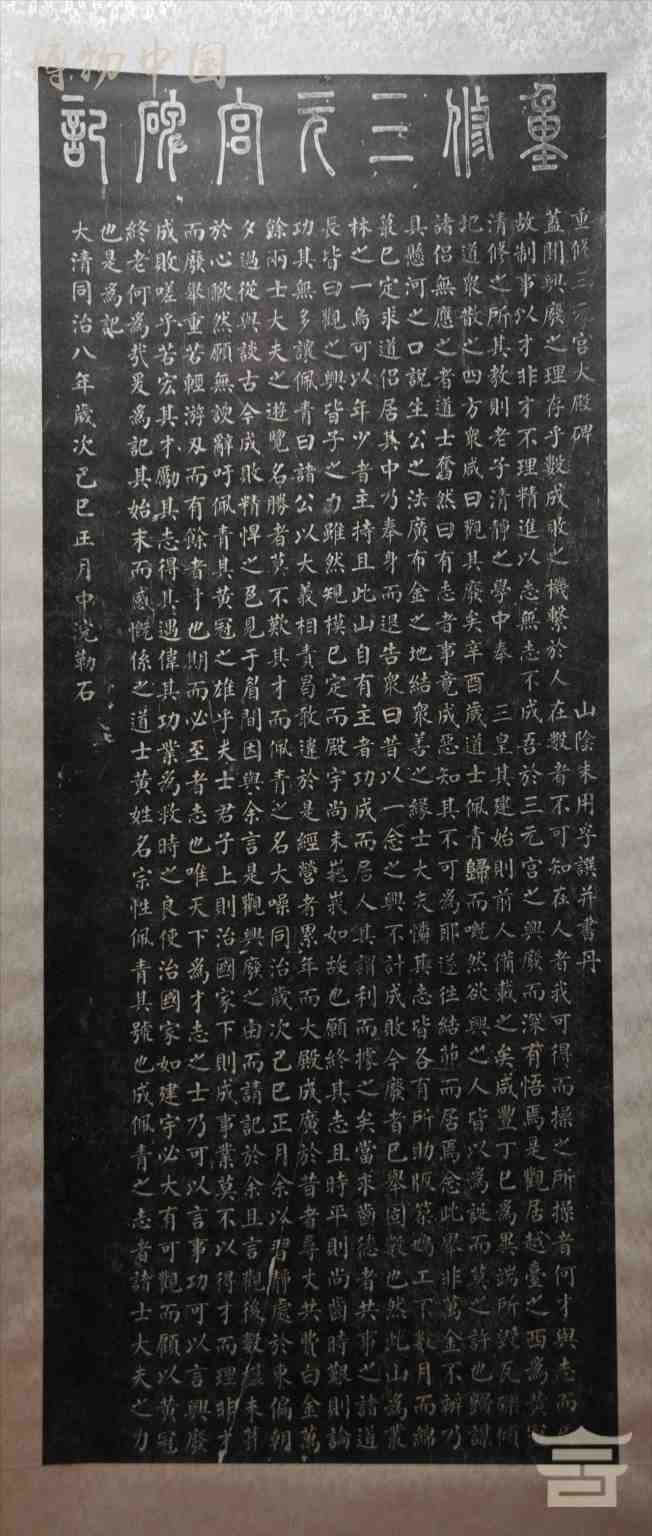 博物中国
重修三元宮碑記
重修三元宮大殿碑
山陰朱用孚譔并書丹
蓋聞興廢之理存乎數成敗之機繫於人在數者不可知在人者我可得而操之所操者何才與志而
故制事以才非才不理精進以志無志不成吾於三元宮之興廢而深有悟焉是觀居越臺之西為黃
清修之所其教則老子清靜之學中奉三皇其建始則前人備載之矣咸豐丁巳為異端所毀瓦礫傾
圮道衆散之四方衆咸曰觀其廢矣辛酉歲道士佩青歸而嘅然欲興之人皆以為誕而莫之許也獨謀
諸侶無應之者道士奮然曰有志者事竟成惡知其不可為耶遂往結茆而居焉念此舉非萬金不辦乃
具懸河之口說生公之法廣布金之地結衆善之緣士大夫憐其志皆各有所助版築鳩工不數月而綿
蕞已定求道侶居其中乃奉身而退告衆曰昔以一念之興不計成敗今廢者已舉固數也然此山為叢
林之一烏可以年少者主持且此山自有主者功成而居人其謂利而據之矣當求齒德者共事之諸道
長皆曰觀之興皆子之力雖然規模已定而殿宇尚未巍峩如故也願終其志且時平則尚齒時艱則論
功其無多讓佩青曰諸公以大義相責曷敢違於是經營者累年而大殿成廣於昔者尋丈共費白金萬
餘兩士大夫之遊覽名勝者莫不歎其才而佩青之名大噪同治歲次己巳正月余以習靜處於東偏朝
夕過從與談古今成敗精悍之色見于眉間因與余言是觀興廢之由而請記於余且言觀後數楹未葺
於心歉然願無諛辭吁佩青其黃冠之雄乎夫士君子上則治國家下則成事業莫不以得才而理非才
而廢舉重若輕游刃而有餘者才也期而必至者志也唯天下為才志之士乃可以言事功可以言興廢
成敗嗟乎苦宏其才勵其志得其遇偉其功業為救時之良使治國家如建宇必大有可觀而顧以黃冠
終老何為哉爰為記其始末而感慨係之道士黃姓名宗性佩青其號也成佩青之志者諸士大夫之力
也是為記
大清同治八年歲次己巳正月中浣勒石